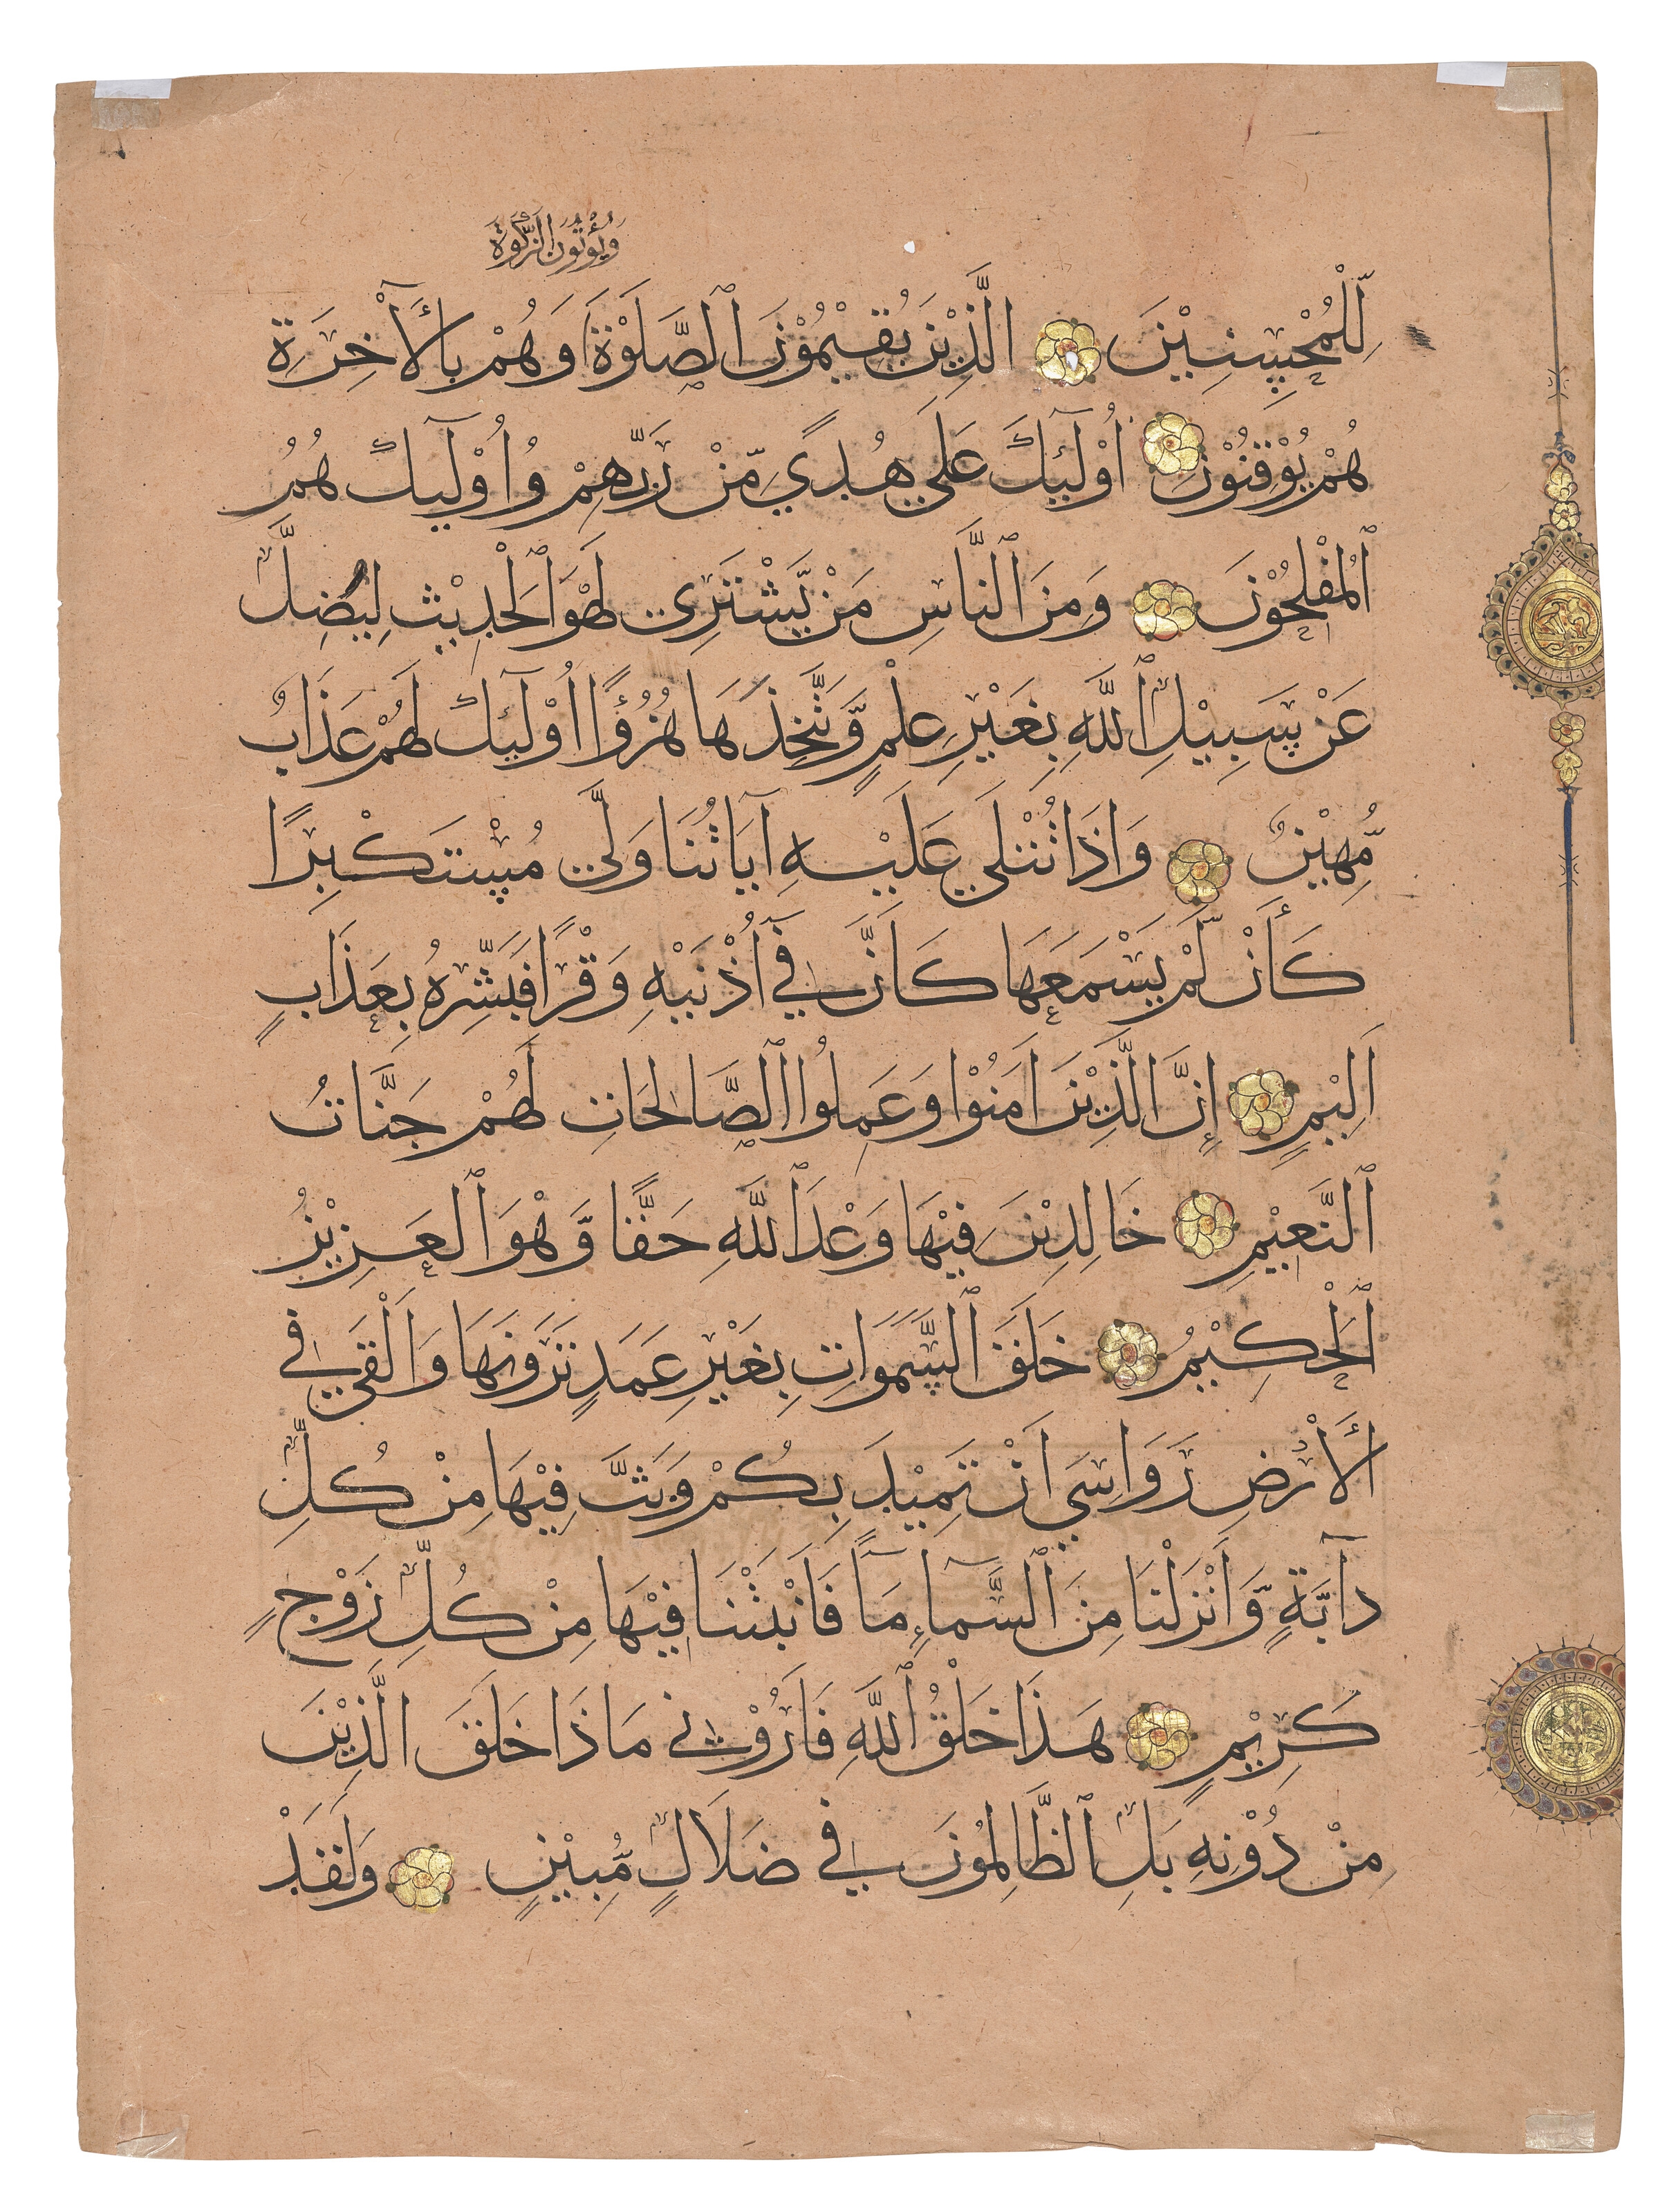 وَيُؤْتُونَ الزَّكٰوةَ
لِّلْمُحْسِنِيْنَ الَّذِيْنَ يُقِيْمُوْنَ ٱلصَّلَوٰةَ وَهُمْ بِالْأَخِرَةِ
هُمْ يُوْقِنُوْنَ اُوْلَٓئِكَ عَلَى هُدًى مِّنْ رَّبِّهِمْ وَاُوْلَٓئِكَ هُمُ
ٱلْمُفْلِحُوْنَ وَمِنَ ٱلنَّاسِ مَنْ يَّشْتَرِى لَهْوَ ٱلْحَدِيْثِ لِيُضِلَّ
عَنْ سَبِيْلِ ٱللَّهِ بِغَيْرِ عِلْمٍ وَّيَتَّخِذَهَا هُزُؤًا اُوْلَٓئِكَ لَهُمْ عَذَابٌ
مُّهِيْنٌ وَاِذَا تُتْلَى عَلَيْهِ آيَاتُنَا وَلَّى مُسْتَكْبِرًا
كَأَنْ لَّمْ يَسْمَعْهَا كَاَنَّ فِي اُذْنَيْهِ وَقْرًا فَبَشِّرْهُ بِعَذَابٍ
اَلِيْمٍ إِنَّ الَّذِيْنَ اٰمَنُوْا وَعَمِلُوا ٱلصَّالِحَاتِ لَهُمْ جَنَّاتُ
ٱلنَّعِيْمِ خَالِدِيْنَ فِيْهَا وَعْدَ ٱللَّهِ حَقًّا وَّهْوَ ٱلْعَزِيْزُ
ٱلْحَكِيْمُ خَلَقَ ٱلسَّمَوَاتِ بِغَيْرِ عَمَدٍ تَرَوْنَهَا وَاَلْقَى فِي
الْأَرْضِ رَوَاسِيَ اَنْ تَمِيْدَ بِكُمْ وَبَثَّ فِيْهَا مِنْ كُلِّ
دَآبَّةٍ وَّاَنْزَلْنَا مِنَ ٱلسَّمَآءِ مَآءً فَاَنْبَتْنَا فِيْهَا مِنْ كُلِّ زَوْجٍ
كَرِيْمٍ هَذَا خَلْقُ ٱللَّهِ فَاَرُوْنِي مَاذَا خَلَقَ الَّذِيْنَ
مِنْ دُوْنِهِ بَلِ ٱلظَّالِمُوْنَ فِي ضَلَالٍ مُّبِيْنٍ وَلَقَدْ